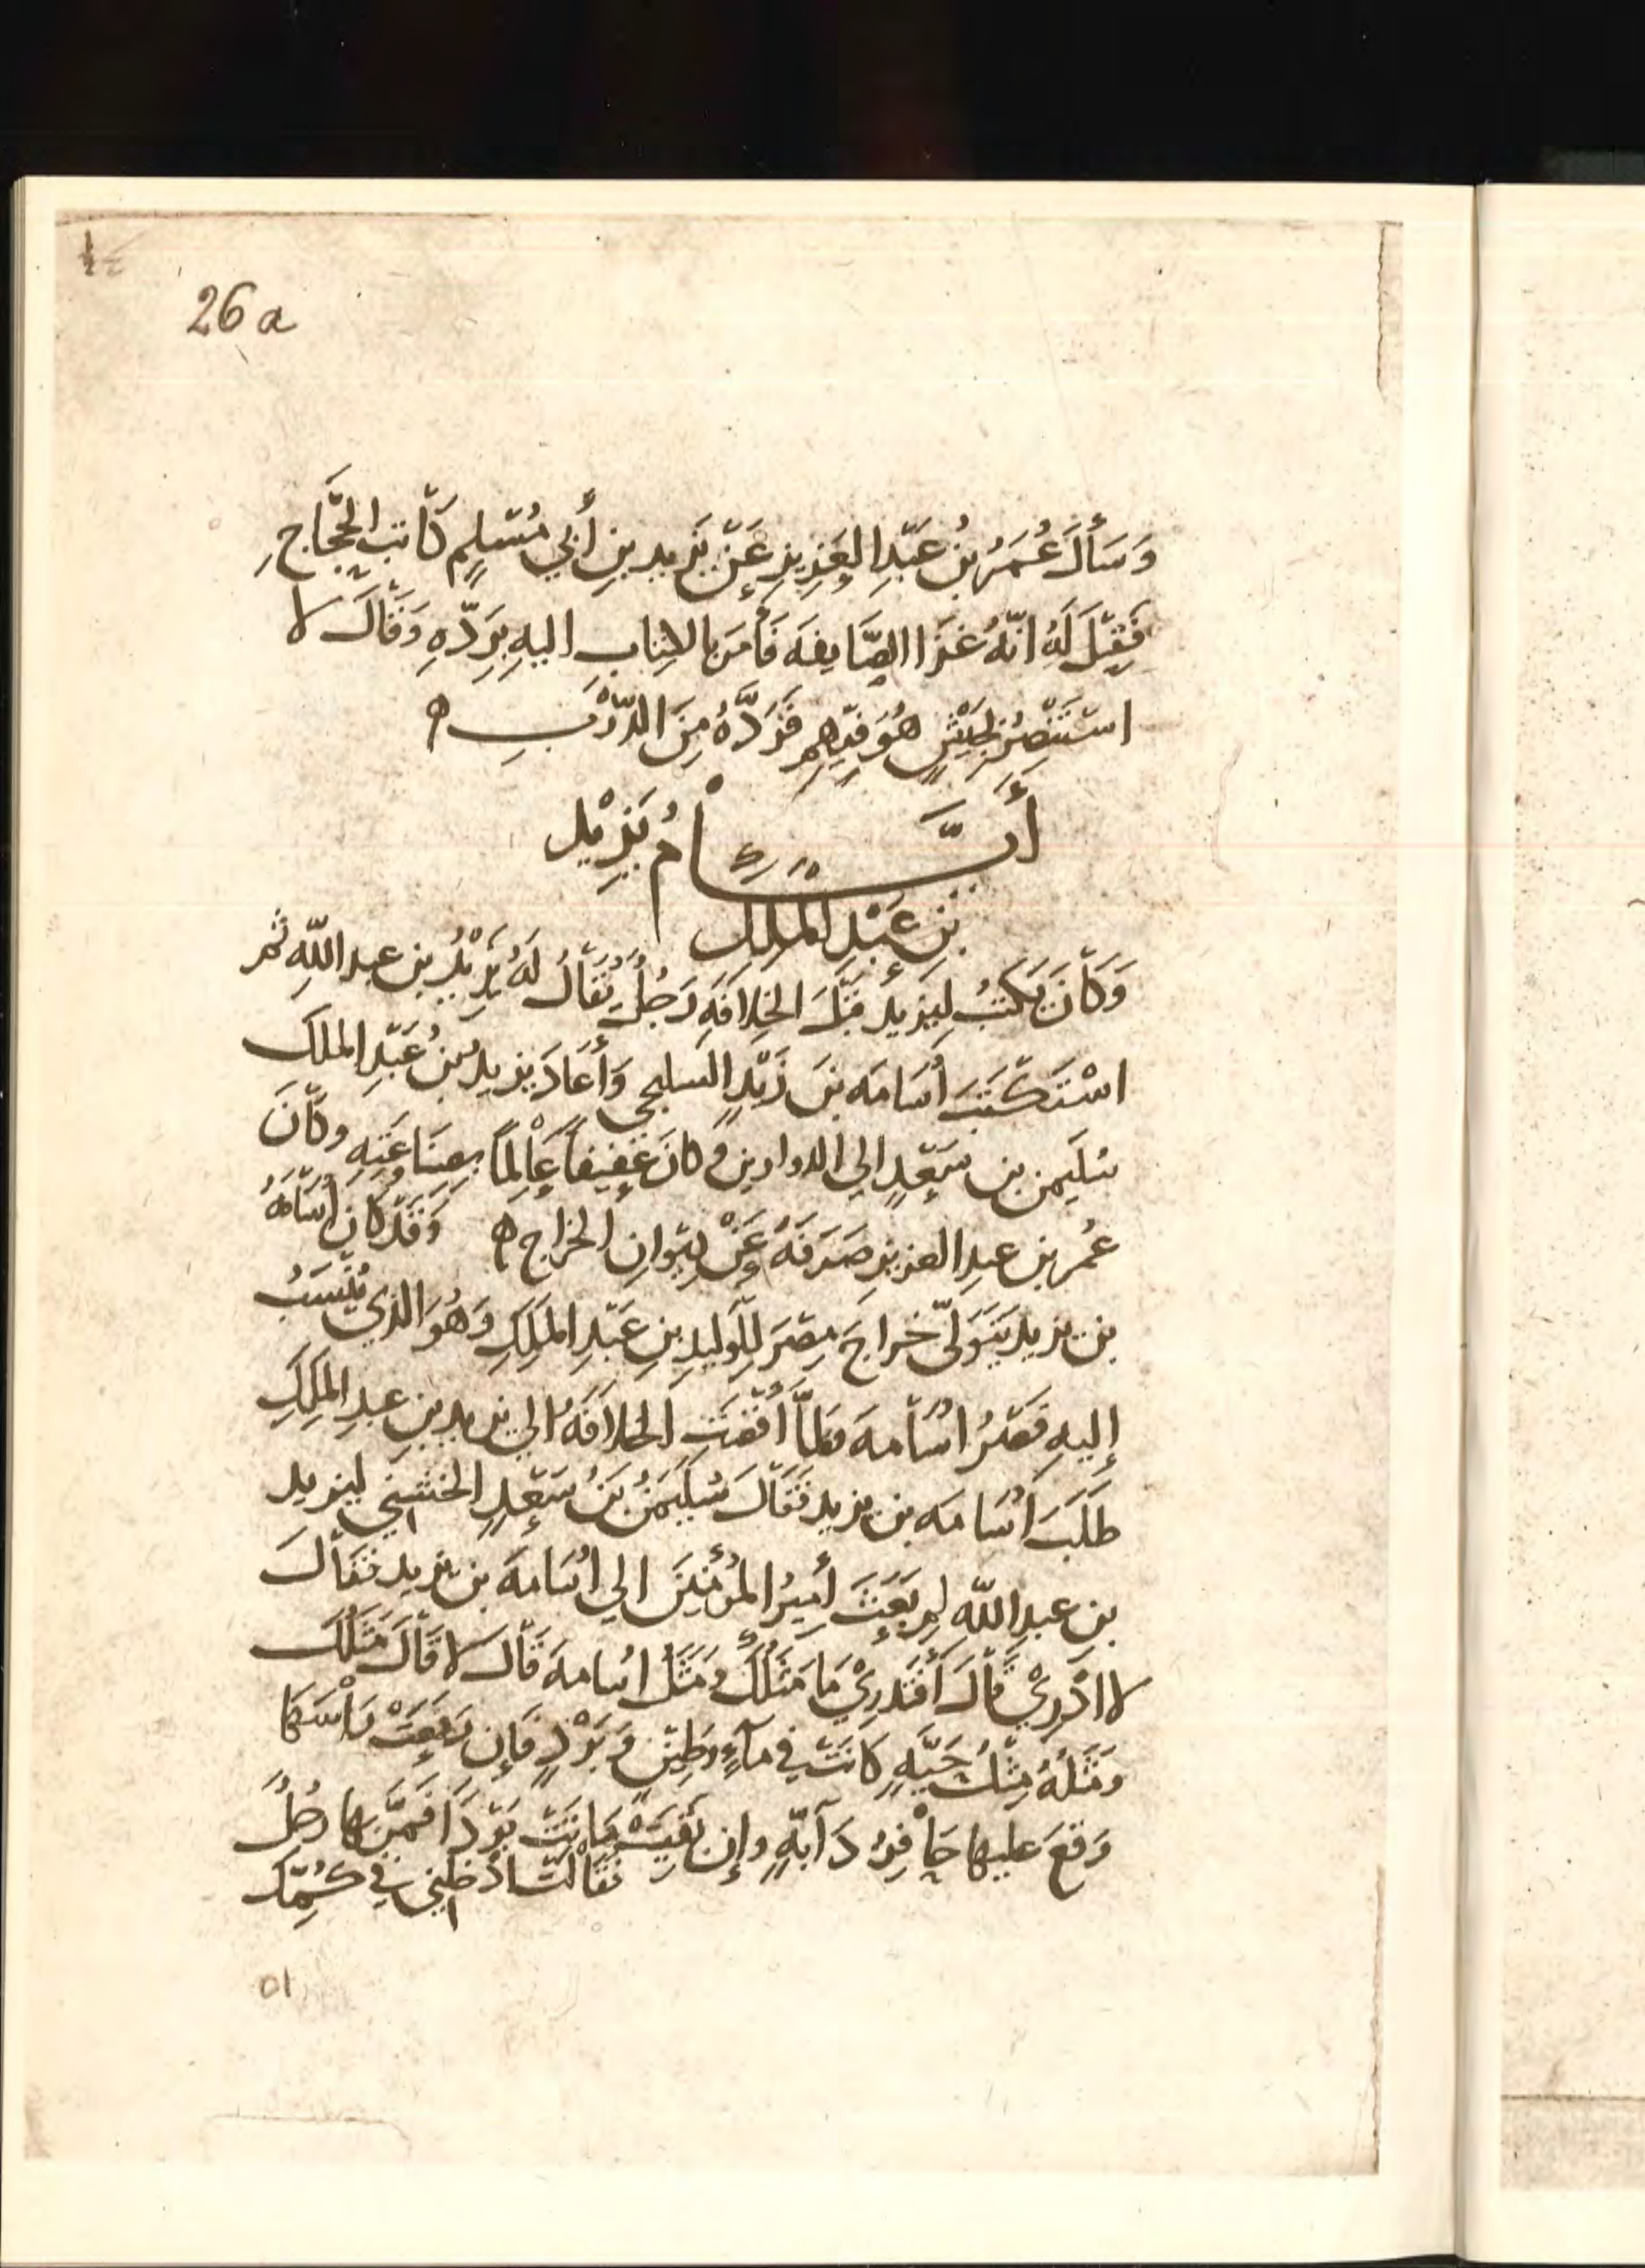 26 a
وَسَأَلَ عُمَرُ بْنُ عَبْدِ العَزِيزِ عَنْ يَزِيدِ بنِ أَبِي مُسْلِمٍ كَاتِبِ الحَجَّاجِ
فَقِيْلَ لَهُ انّهُ غَزَا الصَّايفَه فَأَمَرَ بالكِتابِ اليهِ بِرَدّهِ وَقَالَ لا
اسْتَنْصِرُ بجَيْشٍ هُوَ فِيْهِم فَرَدَّهُ مِنَ الدّرْبِ ه
أَيَّامُ يَزِيْد
بْنِ عَبْدِ المَلِكِ
وَكَانَ يَكتُبُ لِيَزِيدَ قَبْلَ الخِلافَهِ رَجُلٌ يُقَالُ لَهُ يَزِيْدُ بن عبد اللّهِ ثم
اسْتَكْتَبَ أُسَامَه بنَ زَيْدٍ السليحي وَأَعَادَ يزيدُ بْنُ عَبْدِ الملك
سُلَيمن بن سَعْدٍ الي الدواوين وكانَ عَفِيفاً عَالِماً بِصِنَاعَتِهِ وكانَ
عُمر بن عبدِ العزيزِ صَرَفَهُ عَنْ دِيْوانِ الخراج ه وَقَدْ كان أُسَامَهُ
بن يزيد يَتَوَلّى خراجَ مِصْرَ لِلْوَليدِ بنِ عَبْدِ المَلِكِ وَهُوَ الذي يُنْسَبُ
إليهِ قَصْرُ اسَامه فَلمَّا أفْضَتِ الخلافَهُ الي يزيد بنِ عبدِ المَلِكِ
طَلَبَ أُسَامه بن يزيد فَقَالَ سُلَيْمَنُ بْنُ سَعْدٍ الخشني ليزيد
بنِ عبدِ اللّه لِمَ بَعَثَ أَمِيرُ المُؤْمِنينَ الي اسَامهَ بن يزيد فقَالَ
لا ادْرِيْ قَالَ أَفَتَدرِيْ مَا مَثَلُكَ وَمَثَلُ اسامهَ قَالَ لا قَالَ مَثَلُكَ
ومَثَلُهُ مِثْلُ حَيَّهٍ كَانَتْ في مآءٍ وطِيْنٍ وَبَرْدٍ فإن رَفَعَتْ رَأْسَهَا
وَقعَ عليها حَافِرُ دَآبّهٍ وإن بَقِيَتْ مَاتَتْ بَرْدَاً فَمَرَّ بها رجُلٌ
فقَالَت ادْخِلني في كُمِّك